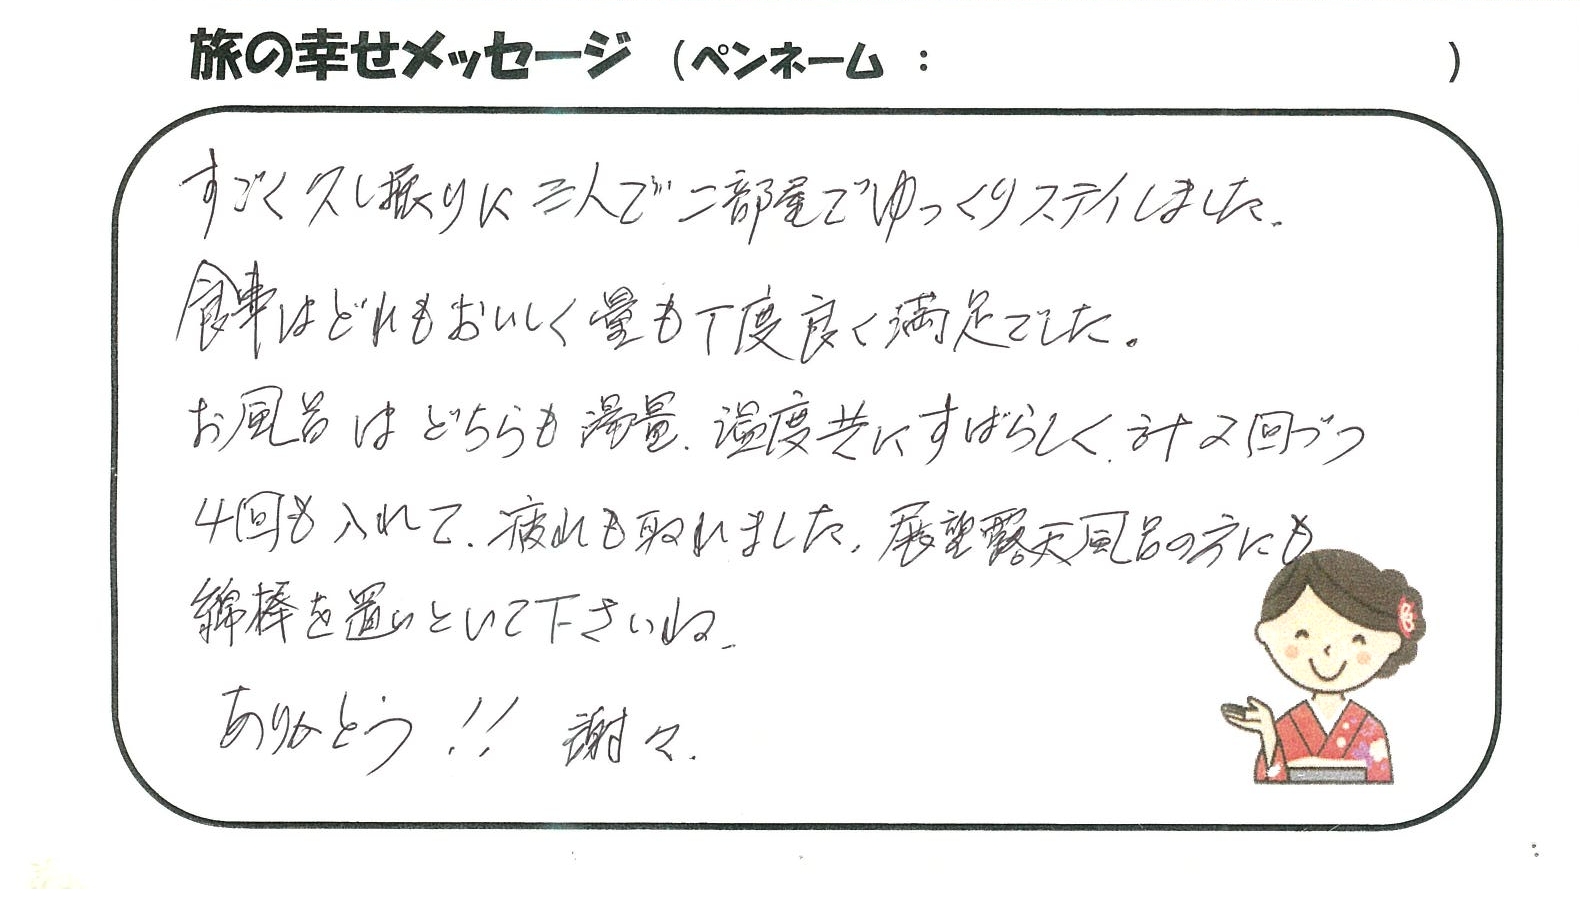 旅の幸せメッセージ (ペンネーム : )
すごく久し振りに三人で二部屋でゆっくりステイしました.
食事はどれもおいしく量も丁度良く満足でした。
お風呂はどちらも湯量、温度共にすばらしく、計2回づつ
4回も入れて、疲れも取れました。展望露天風呂の方にも
綿棒を置いといて下さいね.
ありがとう!! 謝々.